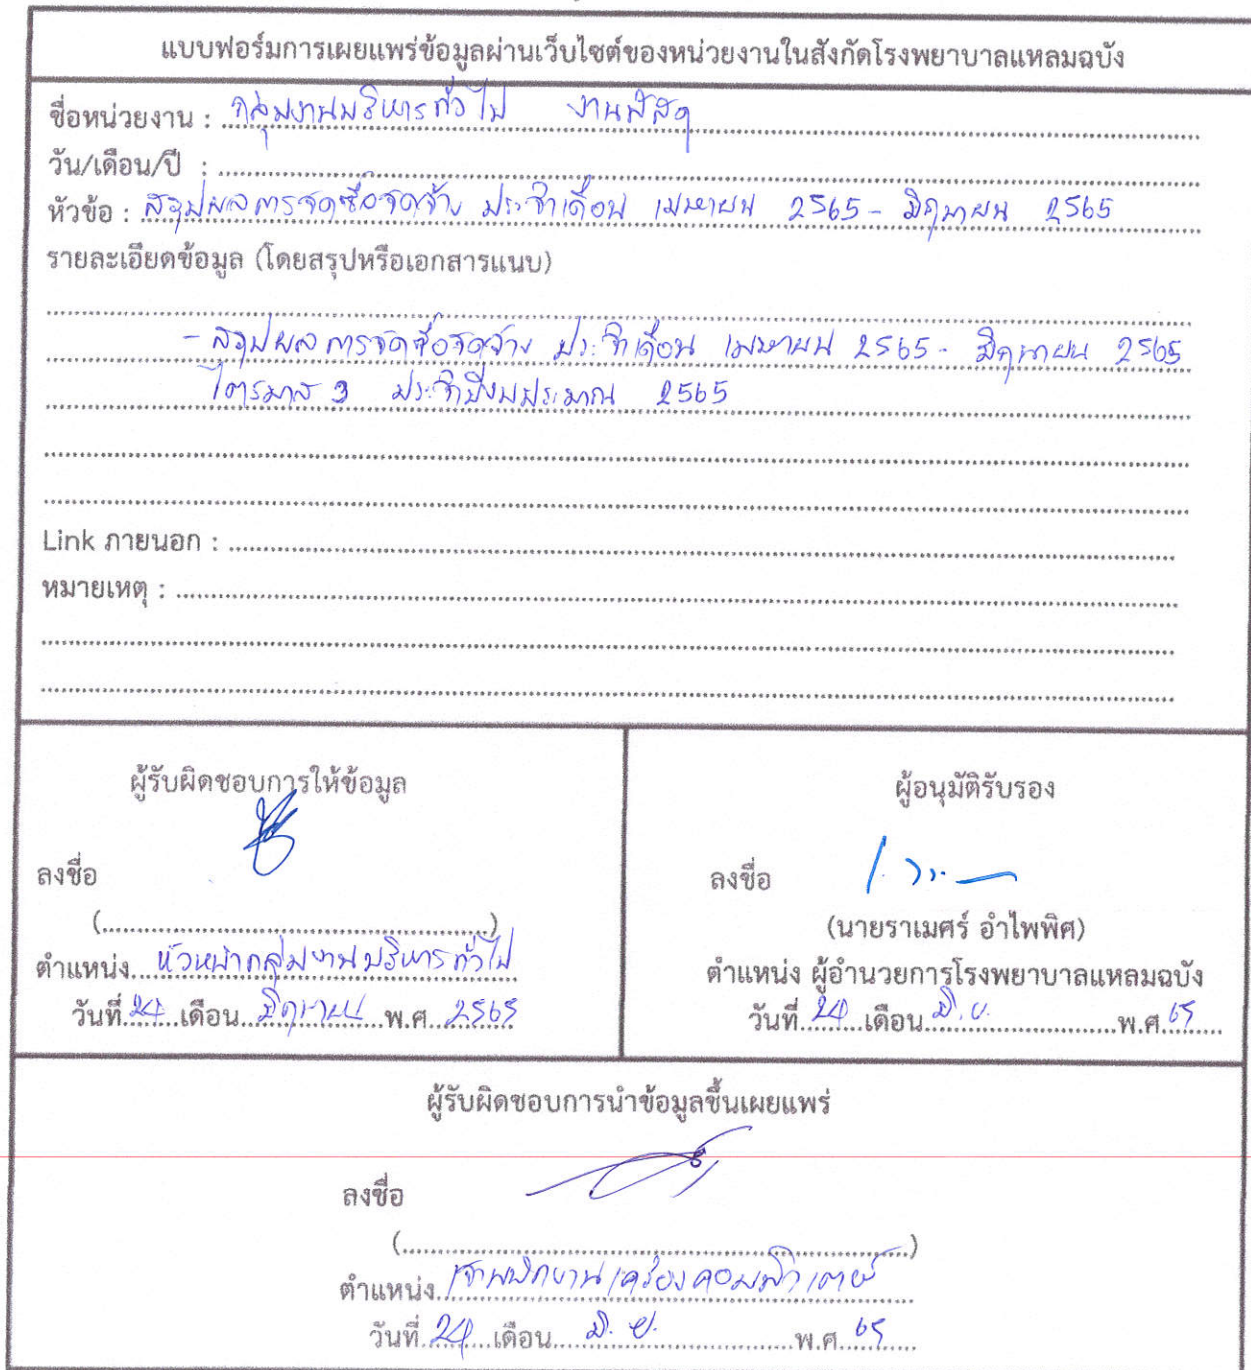 แบบฟอร์มการเผยแพร่ข้อมูลผ่านเว็บไซต์ของหน่วยงานในสังกัดโรงพยาบาลแหลมฉบัง
ชื่อหน่วยงาน : กลุ่มงานบริหารทั่วไป งานพัสดุ
วัน/เดือน/ปี :
หัวข้อ : สรุปผลการจัดซื้อจัดจ้าง ประจำเดือน เมษายน 2565 - มิถุนายน 2565
รายละเอียดข้อมูล (โดยสรุปหรือเอกสารแนบ)
- สรุปผลการจัดซื้อจัดจ้าง ประจำเดือน เมษายน 2565 - มิถุนายน 2565
ไตรมาส 3 ประจำปีงบประมาณ 2565
Link ภายนอก :
หมายเหตุ :
ผู้รับผิดชอบการให้ข้อมูล
ลงชื่อ
(..........)
ตำแหน่ง หัวหน้ากลุ่มงานบริหารทั่วไป
วันที่ 24 เดือน มิถุนายน พ.ศ. 2565
ผู้อนุมัติรับรอง
ลงชื่อ
(นายราเมศร์ อำไพพิศ)
ตำแหน่ง ผู้อำนวยการโรงพยาบาลแหลมฉบัง
วันที่ 24 เดือน มิ.ย. พ.ศ. 65
ผู้รับผิดชอบการนำข้อมูลขึ้นเผยแพร่
ลงชื่อ
(..........)
ตำแหน่ง เจ้าพนักงานเครื่องคอมพิวเตอร์
วันที่ 24 เดือน มิ.ย. พ.ศ. 65